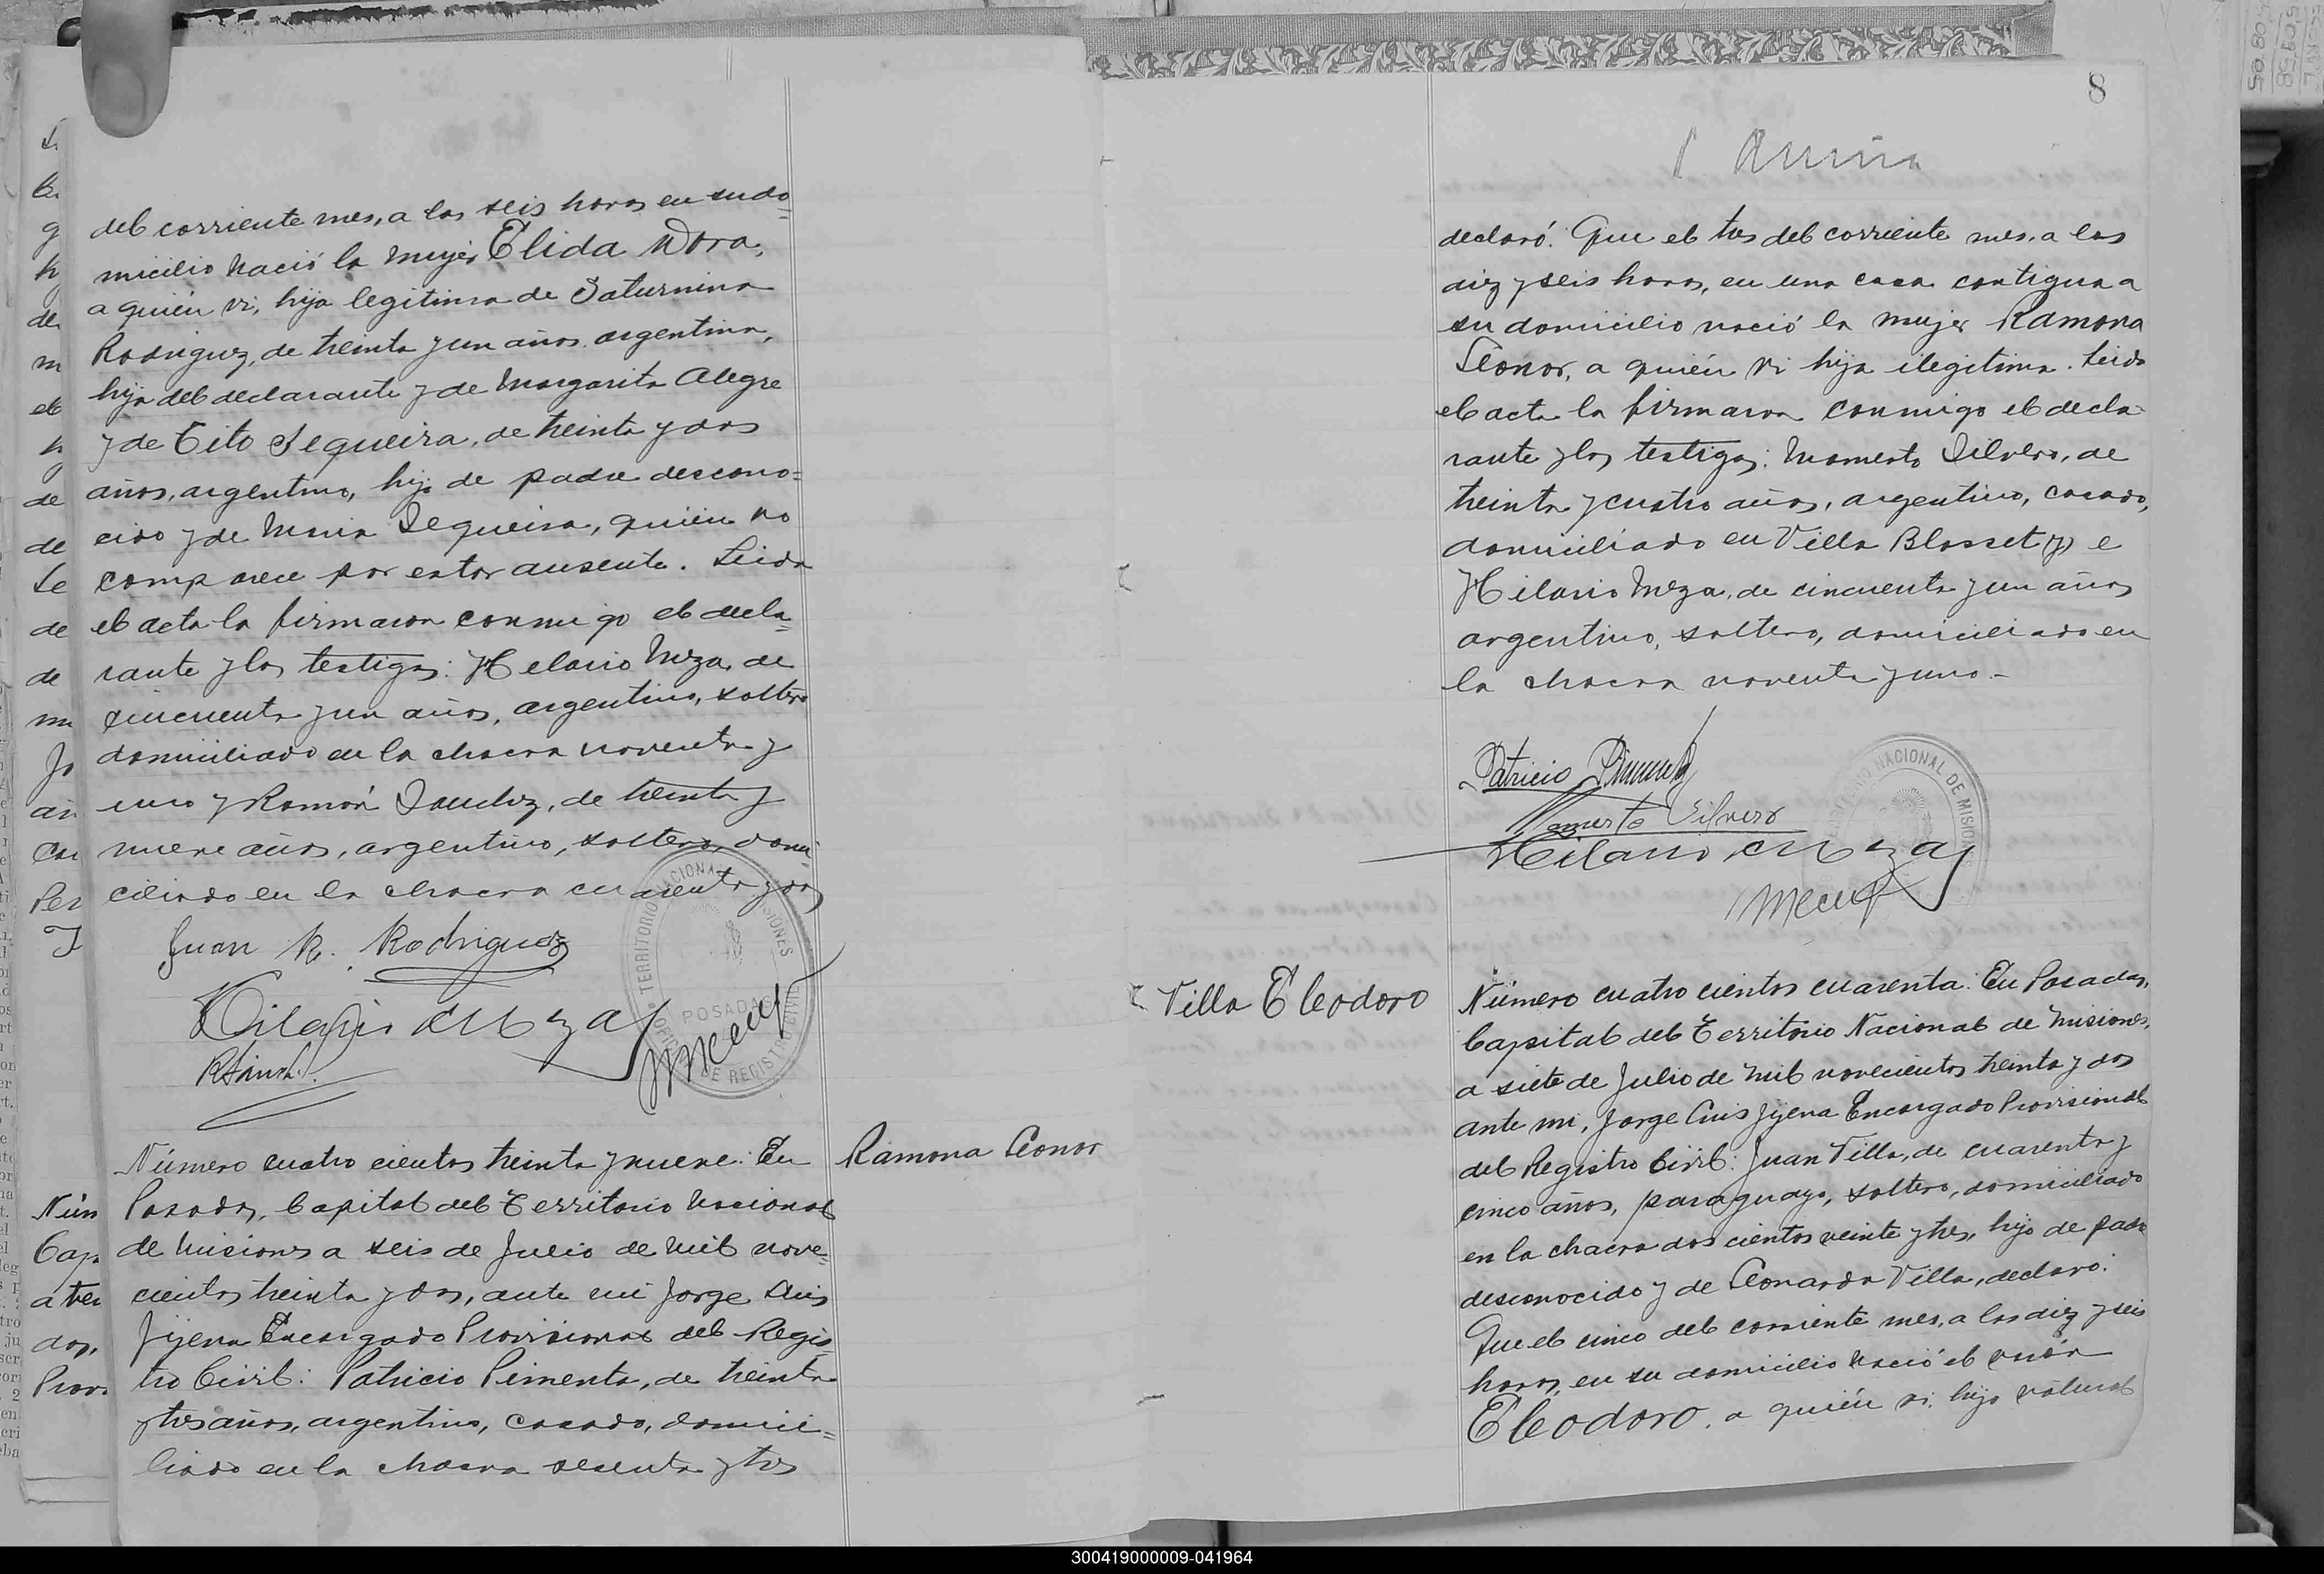 del corriente mes, a las seis horas en su do=
micilio nació la mujer Elida Dora,
a quién vi, hija legitima de Saturnina
Rodriguez, de treinta y un años argentina,
hija del declarante y de Margarita Alegre
y de Tito Sequeira, de treinta y dos
años, argentino, hijo de padre descono=
cido y de Maria Sequeira, quién no
comparece por estar ausente. Leida
el acta la firmaron conmigo el decla=
rante y los testigos: Hilario Meza, de
cincuenta y un años, argentino, soltero
domiciliado en la chacra noventa y
uno y Ramón Sanchez, de treinta y
nueve años, argentino, soltero, domi=
ciliado en la chacra cuarenta y dos
Juan R. Rodriguez
Hilario Meza
TERRITORIO NACIONAL MISIONES
POSADAS
OFICINA DE REGISTRO CIVIL
Número cuatro cientos treinta y nueve: En
Ramona Leonor
Posadas, Capital del Territorio Nacional
de Misiones a seis de Julio de mil nove=
cientos treinta y dos, ante mi Jorge Luis
Jijena Encargado Provisional del Regis=
tro Civil: Patricio Pimenta, de treinta
y tres años, argentino, casado, domici=
liado en la chacra sesenta y tres
8
declaró: Que el tres del corriente mes, a las
diez y seis horas, en una casa contigua a
su domicilio nació la mujer Ramona
Leonor, a quién vi hija ilegitima. Leida
el acta la firmaron conmigo el decla=
rante y los testigos: Mamerto Silvero, de
treinta y cuatro años, argentino, casado,
domiciliado en Villa Blosset (y) e
Hilario Meza, de cincuenta y un años
argentino, soltero, domiciliado en
la chacra noventa y uno.-
Patricio Pimenta
Mamerto Silvero
Hilario Meza
NACIONAL DE MISIONES
Villa Eleodoro
Número cuatro cientos cuarenta: En Posadas,
Capital del Territorio Nacional de Misiones,
a siete de Julio de mil novecientos treinta y dos
ante mi, Jorge Luis Jijena Encargado Provisional
del Registro Civil: Juan Villa, de cuarenta y
cinco años, paraguayo, soltero, domiciliado
en la chacra dos cientos veinte y tres, hijo de padre
desconocido y de Leonarda Villa, declaró:
Que el cinco del corriente mes, a las diez y seis
horas, en su domicilio nació el varón
Eleodoro, a quién vi, hijo natural
300419000009-041964